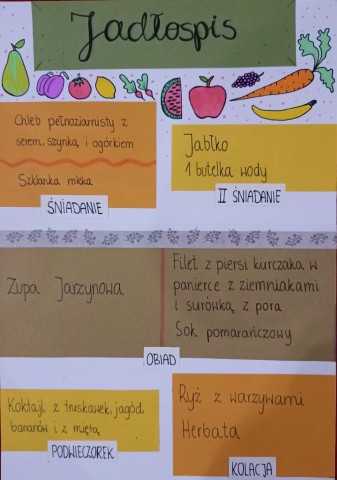 Jadłospis
Chleb pełnoziarnisty z
serem, szynką i ogórkiem
Szklanka mleka
ŚNIADANIE
Jabłko
1 butelka wody
II ŚNIADANIE
Zupa Jarzynowa
Filet z piersi kurczaka w
panierce z ziemniakami
i surówką z pora
Sok pomarańczowy
OBIAD
Koktajl z truskawek, jagód,
bananów i z miętą
PODWIECZOREK
Ryż z warzywami
Herbata
KOLACJA